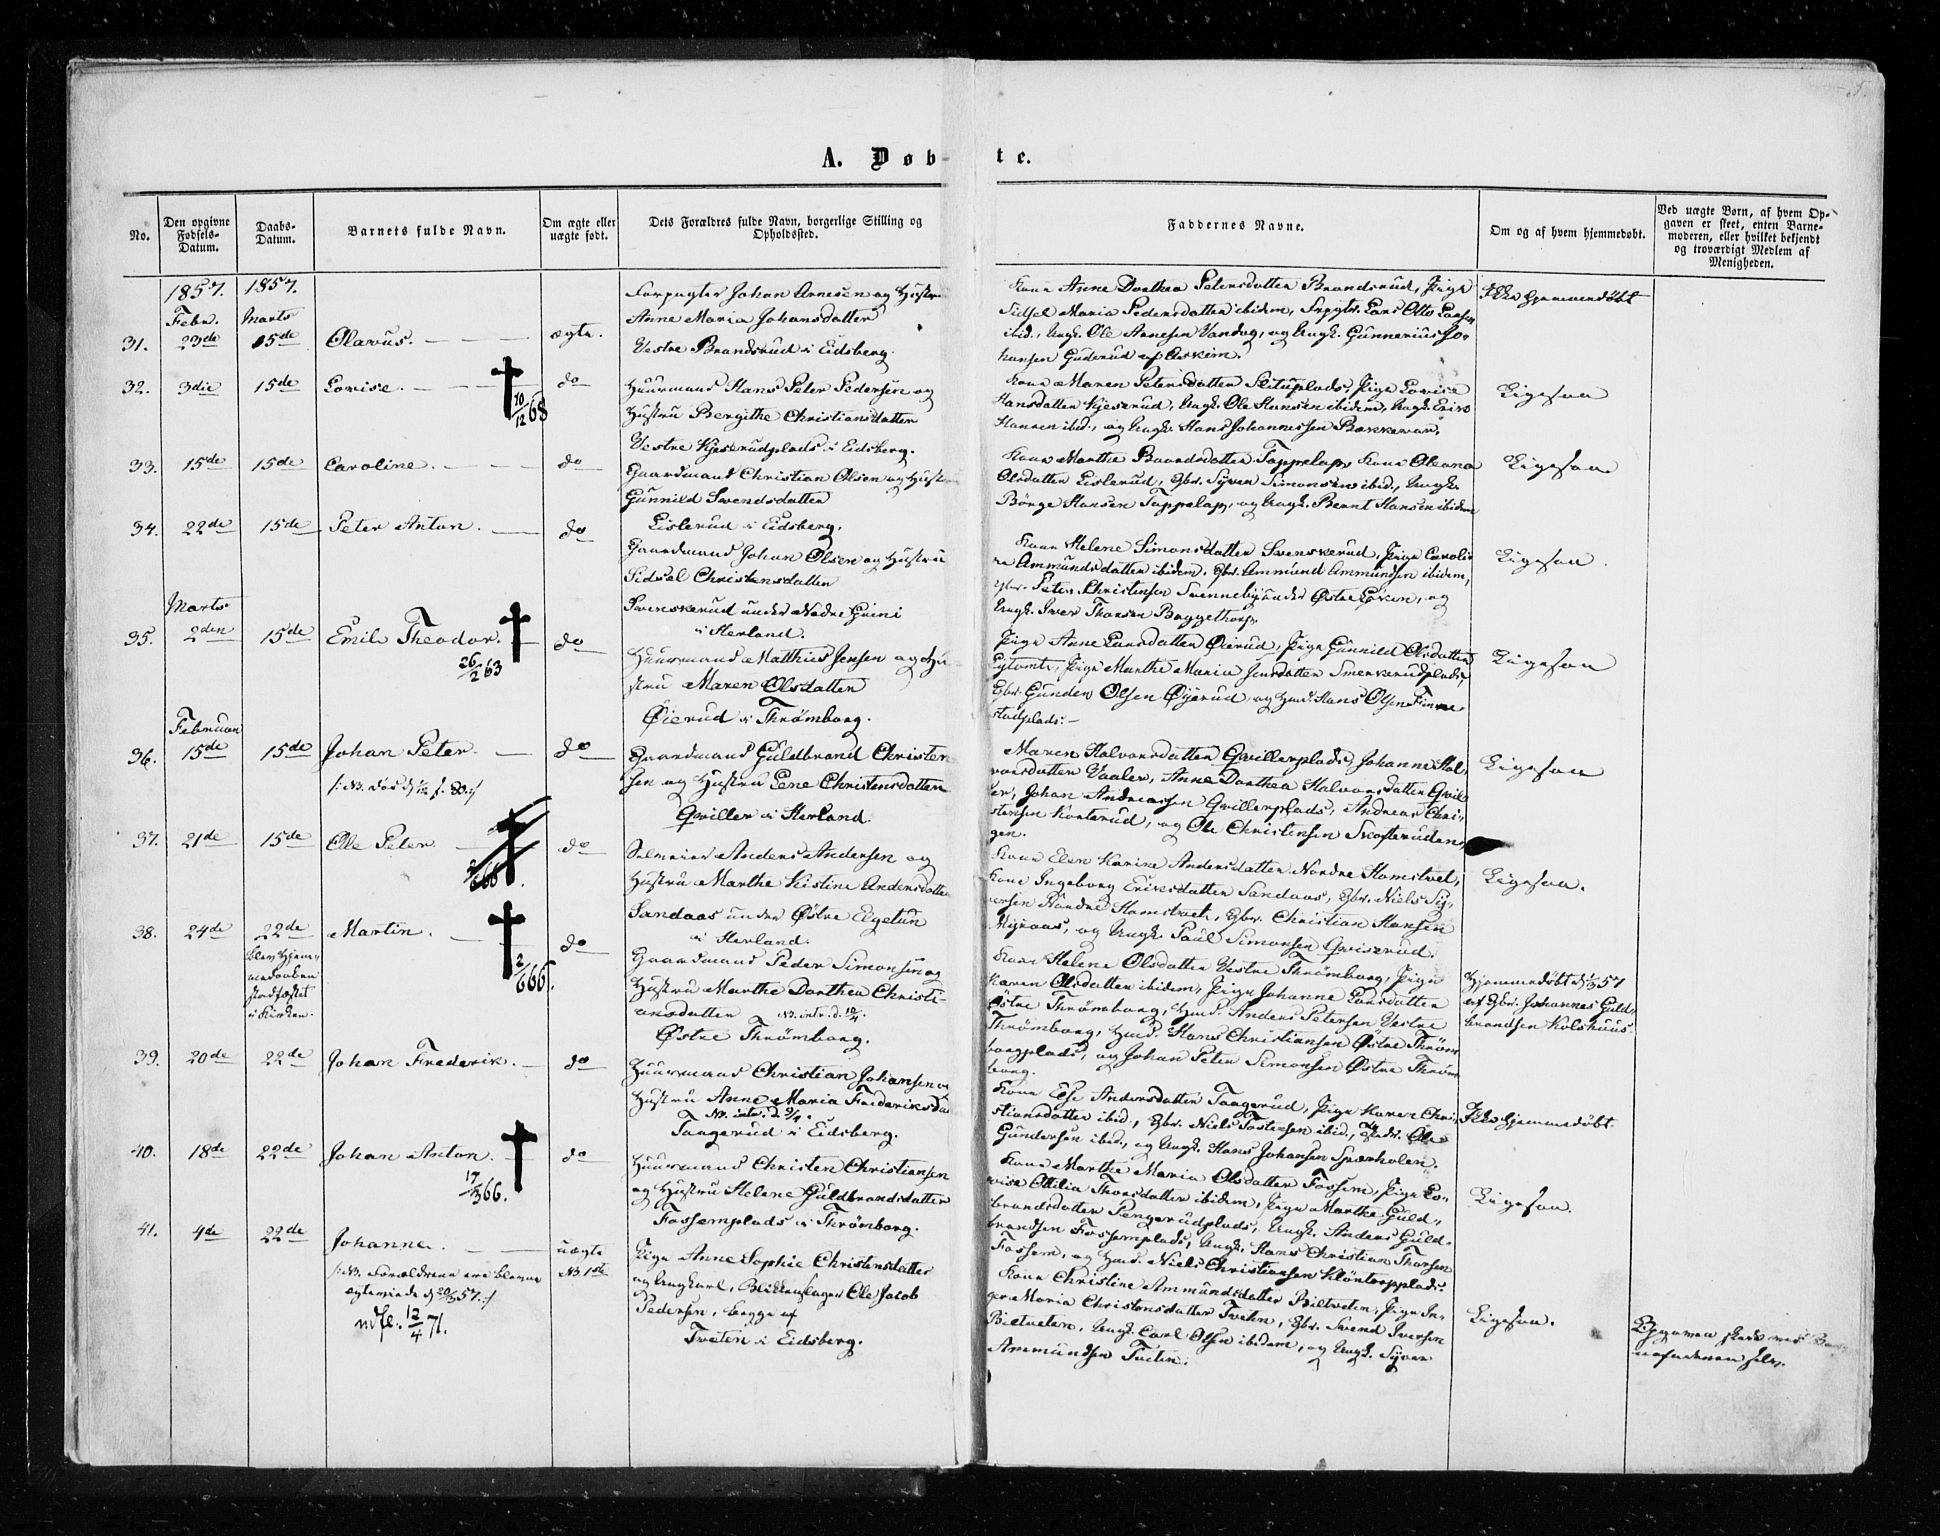 A. Døb- te.
No.
Den opgivne Fødsels-Datum.
Daabs-Datum.
Barnets fulde Navn.
Om ægte eller uægte født.
Dets Forældres fulde Navn, borgerlige Stilling og Opholdssted.
Faddernes Navne.
Om og af hvem hjemmedøbt.
Ved uægte Børn, af hvem Opgaven er skeet, enten Barnemoderen, eller hvilket bekjendt og troværdigt Medlem af Menigheden.
1857. 1857.
Febr. Marts
31. 23de 15de Olavus. ægte.
Forpagter Johan Arnesen og Hustru
Anne Maria Johansdatter
Vestre Brandsrud i Eidsberg.
Kone Anne Dorthea Petersdatter Brandsrud, Pige
Sidsel Maria Pedersdatter ibidem, Lars Otto
ibid., Ungk. Ole Arnesen Vandog, og Ungk. Gunnerius Jo-
hansen Guderud af Askim.
Ikke hjemmedøbt
32. 3die 15de Lovise. do
10/12 68
Huusmand Hans Peter Pedersen og
Hustru Bergithe Christiansdatter
Vestre Kjeserudplads i Eidsberg.
Kone Maren Petersdatter Pige Lovise
Hansdatter Kjeserud, Ungk. Ole Hansen ibidem, Ungk.
Hansen ibid., og Ungk. Hans Johannessen
Ligesaa
33. 15de 15de Caroline. do
Gaardmand Christian Olsen og Hustru
Gunnild Svendsdatter
Lislerud i Eidsberg.
Kone Marthe Baardsdatter Tappelap, Kone Oleana
Olsdatter Lislerud, Gbr. Syver Simonsen ibid., Ungk.
Børge Hansen Tappelap, og Ungk. Bernt Hansen ibidem
Ligesaa
34. 22de 15de Peter Anton. do
Gaardmand Johan Olsen og Hustru
Sidsel Christensdatter
Svenskerud under Nedre
i Herland.
Kone Helene Simonsdatter Svenskerud, Pige Caroli-
ne Ammundsdatter ibidem, Gbr. Ammund Ammundsen ibidem,
Gbr. Peter Christensen Svenneby under Østre og
Ungk. Iver Thorsen Baggethorp.
Ligesaa.
Marts
35. 2den 15de Emil Theodor. do
26/2 63
Huusmand Matthias Jensen og Hu-
stru Maren Olsdatter
Øierud i Thrømborg.
Pige Anne Larsdatter Øierud, Pige Gunnild Olsdatter
Pige Marthe Maria Jensdatter Smerkerudplads,
Gbr. Gunder Olsen Øierud, og Hmd. Hans Olsen Finne-
stadplads.
Ligesaa
Februar
36. 15de 15de Johan Peter. do
Gaardmand Guldbrand Christen-
sen og Hustru Lene Christensdatter
Qviller i Herland.
Maren Halvorsdatter Qvillerplads, Johanne Hal-
vorsdatter Vaaler, Anne Dorthea Halvorsdatter Qvil-
ler, Johan Andreassen Qvillerplads, Andreas Chri-
stensen Korterud, og Ole Christensen
gen.
Ligesaa
37. 21de 15de Ole Peter. do
Selveier Anders Andersen og
Hustru Marthe Kistine Andersdatter
Sandaas under Østre Elgetun
i Herland.
Kone Elen Karine Andersdatter Nordre Homstvet,
Kone Ingeborg Eriksdatter Sandaas, Gbr. Niels Sy-
versen Nordre Homstvet, Gbr. Christian Hansen
Myraas, og Ungk. Paul Simonsen Qviserud.
Ligesaa.
38. 24de 22de Martin. do
Blev Hjem-
medaaben
stadfæstet
i Kirken.
2/6 66.
Gaardmand Peder Simonsen og
Hustru Marthe Dorthea Christi-
ansdatter NB. intr. d. 12/4.
Østre Thrømborg.
Kone Helene Olsdatter Vestre Thrømborg, Pige
Karen Olsdatter ibidem, Pige Johanne Larsdatter
Østre Thrømborg, Hmd. Anders Petersen Vestre
Thrømborg, Hmd. Hans Christiansen Østre Thrøm-
borgplads, og Johan Peter Simonsen Østre Thrøm-
borg.
Hjemmedøbt 57
af Gbr. Johannes Guld-
brandsen Kolshuus
39. 20de 22de Johan Frederik. do
Huusmand Christian Johansen og
Hustru Anne Maria Frederiksdatter
NB. intr. d. 9/4.
Taagerud i Eidsberg.
Kone Else Andersdatter Taagerud, Pige Karen Chri-
stiansdatter ibid., Gbr. Niels Torstensen ibid., Ole
Gundersen ibid., og Ungk. Hans Johansen Sparholen.
Ikke hjemmedøbt.
40. 18de 22de Johan Anton. do
17/3 66.
Huusmand Christen Christiansen
og Hustru Helene Guldbrandsdatter
Fossemplads i Thrømborg.
Kone Marthe Maria Olsdatter Fossem, Pige Lo-
vise Ottilia Thorsdatter ibidem, Pige Marthe Guld-
brandsdatter Pengerudplads, Ungk. Anders Guld-
brandsen Fossemplads, Ungk. Hans Christian Thorsen
Fossem, og Hmd. Niels Christiansen
Ligesaa.
41. 4de 22de Johanne. uægte
NB. 1ste
/: NB. Forældrene ere blevne
ægteviede d. 57. :/
udfl. 12/4 71.
Pige Anne Sophie Christensdatter
og Ungkarl, Blikkenslager Ole Jacob
Pedersen, begge af
Tveten i Eidsberg.
Kone Christine Ammundsdatter Biltveten, Pige In-
ger Maria Christensdatter Tveten, Gbr. Svend Iversen
Biltveten, Ungk. Carl Olsen ibidem, og Ungk. Syver
Ammundsen Tveten.
Ligesaa.
Opgaven skede ved